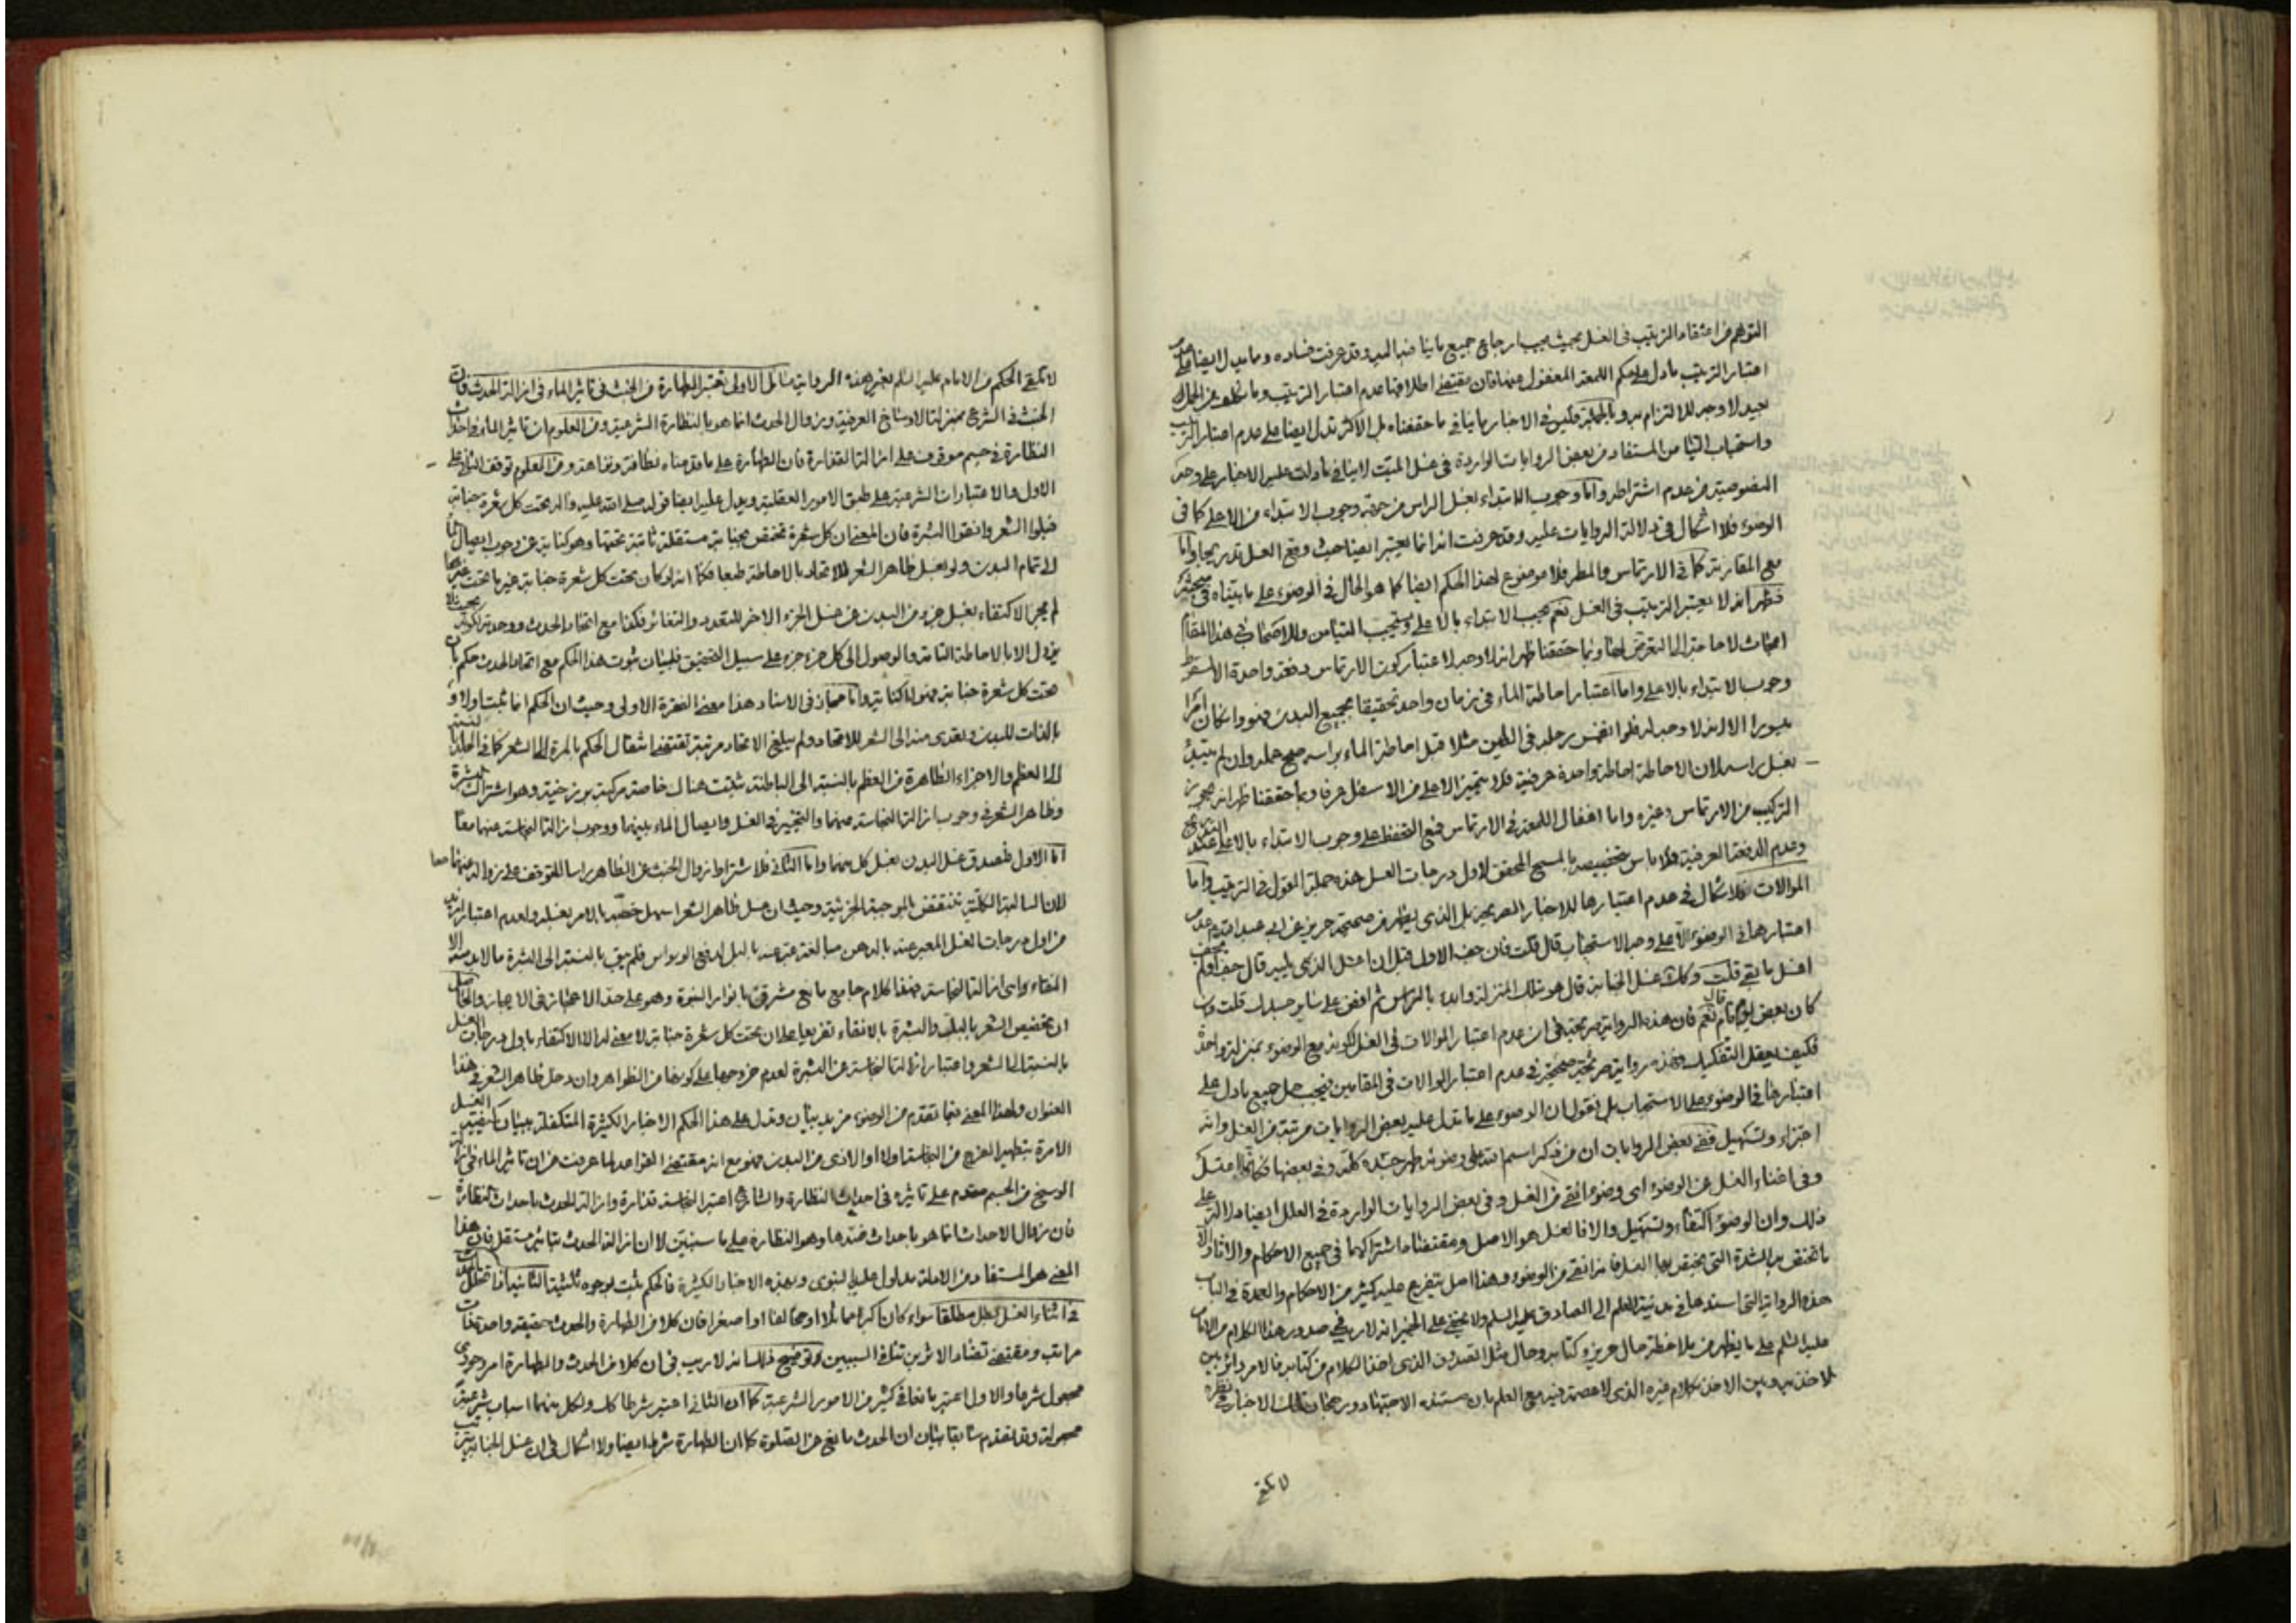 التوهم من اعتقاد الترتيب في الغسل بحيث يجب ارجاع جميع ما ينافيه اليه وقد عرفت فساده ومما يدل ايضا على عدم
اعتبار الترتيب ما دل على حكم اللمعة المغفول عنها فان مقتضى اطلاقها عدم اعتبار الترتيب وما
بعيد لا وجه للالتزام به وبالجملة فليس في الاخبار ما ينافي ما حققناه بل الاكثر تدل ايضا على عدم اعتبار الترتيب
واستحباب التيامن المستفاد من بعض الروايات الواردة في غسل الميت لا ينافي ما دلت عليه الاخبار على وجه
الخصوصية من عدم اشتراطه واما وجوب الابتداء بغسل الراس من جهة وجوب الابتداء من الاعلى كما في
الوضوء فلا اشكال في دلالة الروايات عليه وقد عرفت انه انما يعتبر ايضا حيث وقع الغسل تدريجا واما
مع المقارنة كما في الارتماس والمطر فلا موضوع لهذا الحكم ايضا كما هو الحال في الوضوء على ما بيناه في مبحثه
فظهر انه لا يعتبر الترتيب في الغسل نعم يجب الابتداء بالاعلى ويستحب التيامن وللاصحاب في هذا المقام
ابحاث لا حاجة الى التعرض لها ومما حققنا ظهر انه لا وجه لاعتبار كون الارتماس دفعة واحدة الا لسقوط
وجوب الابتداء بالاعلى واما اعتبار احاطة الماء في زمان واحد تحقيقا بجميع البدن فهو وان كان امرا
ميسورا الا انه لا وجه له فلو انغمس رجله في الطين مثلا قبل احاطة الماء براسه صح عمله وان لم يبتدئ
بغسل راسه لان الاحاطة احاطة واحدة عرفية فلا يتميز الاعلى من الاسفل عرفا ومما حققنا ظهر انه يجوز
التركيب من الارتماس وغيره واما اغفال اللمعة في الارتماس فمع التحفظ على وجوب الابتداء بالاعلى عند التدريج
وعدم الدفعة العرفية فلا باس بتخصيصه بالمسح المحقق لاول درجات الغسل هذه جملة القول في الترتيب واما
الموالات فلا اشكال في عدم اعتبارها للاخبار الصريحة بل الذي يظهر من صحيحة حريز عن ابي عبد الله ع عدم
اعتبارها في الوضوء الا على وجه الاستحباب قال قلت فان جف الاول قبل ان اغسل الذي يليه قال جف او لم يجف
اغسل ما بقي قلت وكذلك غسل الجنابة قال هو بتلك المنزلة وابدء بالراس ثم افض على ساير جسدك قلت وان
كان بعض يوم قال نعم فان هذه الرواية صريحة في ان عدم اعتبار الموالات في الغسل لكونه مع الوضوء بمنزلة واحدة
فكيف يعقل التفكيك فهذه رواية صريحة صحيحة في عدم اعتبار الموالات في المقامين فيجب حمل جميع ما دل على
اعتبارها في الوضوء على الاستحباب بل نقول ان الوضوء على ما تدل عليه بعض الروايات مرتبة من الغسل وانه
اجتزاء وتسهيل ففي بعض الروايات ان من ذكر اسم الله على وضوئه طهر جسده كله وفي بعضها فكانما اغتسل
وفي اغناء الغسل عن الوضوء اي وضوء انقى من الغسل وفي بعض الروايات الواردة في العلل ايضا دلالة على
ذلك وان الوضوء اكتفاء وتسهيل والا فالغسل هو الاصل ومقتضاه اشتراكهما في جميع الاحكام والاثار الا
ما تختص به الشدة التي يختص بها الغسل فانه انقى من الوضوء وهذا اصل يتفرع عليه كثير من الاحكام والعمدة في الباب
هذه الرواية التي اسندها في مدينة العلم الى الصادق عليه السلم ولا يخفى على الخبير انه لا ريب في صدور هذا الكلام من الامام
عليه السلم على ما يظهر من ملاحظة حال حريز وكتابه وحال مثل الصدوق الذي اخذ الكلام من كتابه فالامر دائر بين
الاخذ به وبين الاخذ بكلام غيره الذي لا عصمة فيه مع العلم بان مستنده الاجتهاد ورجحان تلك الاخبار في نظره
لا تلقي
لا تلقي الحكم من الامام عليه السلم بغير هذه الرواية مسائل الاولى تعتبر الطهارة من الخبث في تاثير الماء في ازالة الحدث فان
الخبث في الشرع بمنزلة الاوساخ العرفية وزوال الحدث انما هو بالنظارة الشرعية ومن المعلوم ان تاثير الماء في احداث
النظارة في جسم موقوف على ازالة القذارة فان الطهارة على ما قدمناه نظافة ونزاهة ومن المعلوم توقف الثاني على
الاول والاعتبارات الشرعية على طبق الامور العقلية ويدل عليه ايضا قوله صلى الله عليه واله تحت كل شعرة جنابة
فبلوا الشعر وانقوا البشرة فان المعنى ان كل شعرة تختص بجنابة مستقلة ثابتة تحتها وهو كناية عن وجوب ايصال الماء
الى تمام البدن ولو بغسل ظاهر الشعر للاتحاد بالاحاطة طبعا فكما انه لو كان تحت كل شعرة جنابة غير ما تحت غيرها
لم يجز الاكتفاء بغسل جزء من البدن عن غسل الجزء الاخر للتعدد والتغاير فكذا مع اتحاد الحدث ووحدته لكونه بحيث لا
يزول الا بالاحاطة التامة والوصول الى كل جزء جزء على سبيل التحقيق فلبيان ثبوت هذا الحكم مع اتحاد الحدث حكم بان
تحت كل شعرة جنابة فهو اما كناية واما مجاز في الاسناد هذا معنى الفقرة الاولى وحيث ان الحكم انما يثبت اولا و
بالذات للبدن ويتعدى منه الى الشعر للاتحاد ولم يبلغ الاتحاد مرتبة تقتضي انتقال الحكم بالمرة الى الشعر كما في الجلد بالنسبة
الى العظم والاجزاء الظاهرة من العظم بالنسبة الى الباطنة ثبتت هناك خاصة مركبة برزخية وهو اشتراك البشرة
وظاهر الشعر في وجوب ازالة النجاسة عنهما والتخيير في الغسل وايصال الماء بينهما ووجوب ازالة النجاسة عنهما معا
اما الاول فلصدق غسل البدن بغسل كل منهما واما الثاني فلاشتراط زوال الخبث عن الظاهر راسا المتوقف على زواله عنهما معا
لان السالبة الكلية تنتقض بالموجبة الجزئية وحيث ان غسل ظاهر الشعر اسهل خصه بالامر بغسله ولعدم اعتبار ازيد
من اول درجات الغسل المعبر عنه بالدهن مبالغة عبر عنه بالبل لدفع الوسواس فلم يبق بالنسبة الى البشرة ما لا بد منه الا
النقاء واي ازالة النجاسة فهذا كلام جامع مانع مشرق بانوار النبوة وهو على حد الاعجاز في الايجاز والحاصل
ان تخصيص الشعر بالبلل والبشرة بالانقاء تفريعا على ان تحت كل شعرة جنابة لا معنى له الا الاكتفاء باول درجات الغسل
بالنسبة الى الشعر واعتبار ازالة النجاسة عن البشرة لعدم خروجها على كونها من الظواهر وان دخل ظاهر الشعر في هذا
العنوان ولهذا المعنى فيما تقدم من الوضوء مزيد بيان وتدل على هذا الحكم الاخبار الكثيرة المتكفلة ببيان كيفية الغسل
الامرة بتطهير الفرج من النجاسة اولا او الاذى من البدن فهو مع انه مقتضى القواعد لما عرفت من ان تاثير الماء في ازالة
الوسخ من الجسم مقدم على تاثيره في احداث النظارة والشارع اعتبر النجاسة قذارة وازالة الحدث باحداث النظارة
فان زوال الاحداث انما هو باحداث ضدها وهو النظارة على ما سنبين لا ان ازالة الحدث بتاثير مستقل فان هذا
المعنى هو المستفاد من الادلة مدلول عليه بالنبوي وبهذه الاخبار الكثيرة فالحكم يثبت بوجوه ثلثة الثانية اذا تخلل الحدث
في اثناء الغسل ابطل مطلقا سواء كان اكبر مماثلا او مخالفا او اصغر فان كلا من الطهارة والحدث حقيقة واحدة ذات
مراتب ومقتضى تضاد الاثرين تنافي السببين وتوضيح ذلك انه لا ريب في ان كلا من الحدث والطهارة امر وجودي
مجعول شرعا والاول اعتبر مانعا في كثير من الامور الشرعية كما ان الثاني اعتبر شرطا كك ولكل منهما اسباب شرعية
مجعولة وقد تقدم سابقا بيان ان الحدث مانع عن الصلوة كما ان الطهارة شرط ايضا ولا اشكال في ان غسل الجنابة يترتب